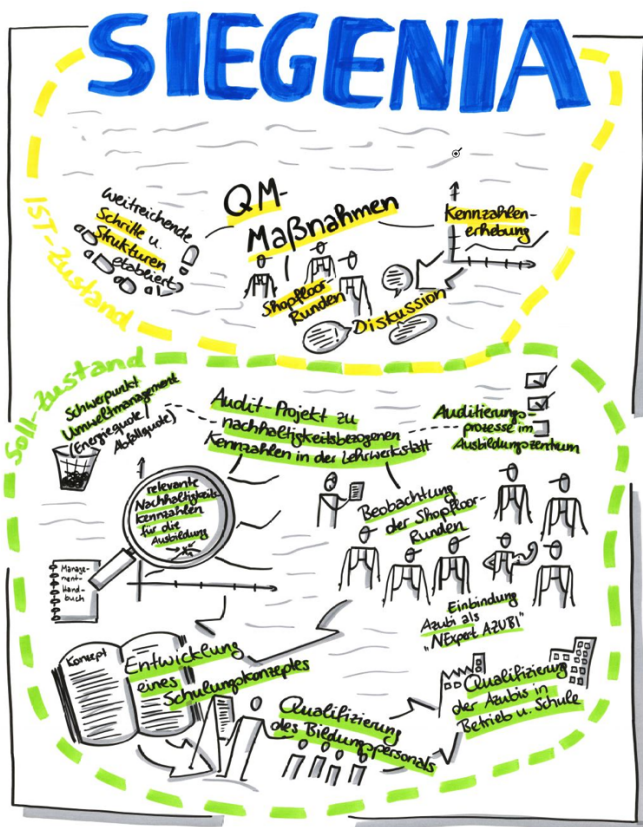 SIEGENIA
IST-Zustand
weitreichende
Schritte u.
Strukturen
etabliert
QM-
Maßnahmen
Kennzahlen-
erhebung
Shopfloor-
Runden
Diskussion
Soll-Zustand
Schwerpunkt
Umweltmanagement
(Energiequote/
Abfallquote)
Audit-Projekt zu
nachhaltigkeitsbezogenen
Kennzahlen in der Lehrwerkstatt
Auditierungs-
prozesse im
Ausbildungszentrum
relevante
Nachhaltigkeits-
kennzahlen
für die
Ausbildung
Beobachtung
der Shopfloor-
Runden
Manage-
ment-
Hand-
buch
Einbindung
Azubi als
"NExpert AZUBI"
Konzept
Entwicklung
eines
Schulungskonzeptes
Qualifizierung
des Bildungspersonals
Qualifizierung
der Azubis in
Betrieb u. Schule